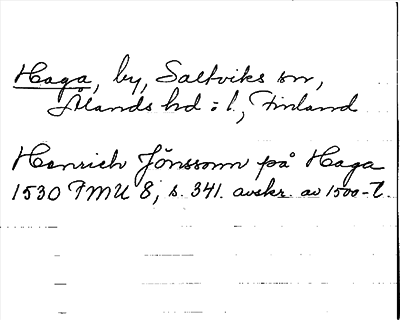 Haga, by, Saltviks sn,
Ålands hd : l, Finland
Henrich Jönssonn på Haga
1530 FMU 8, s. 341. avskr. av 1500-t.